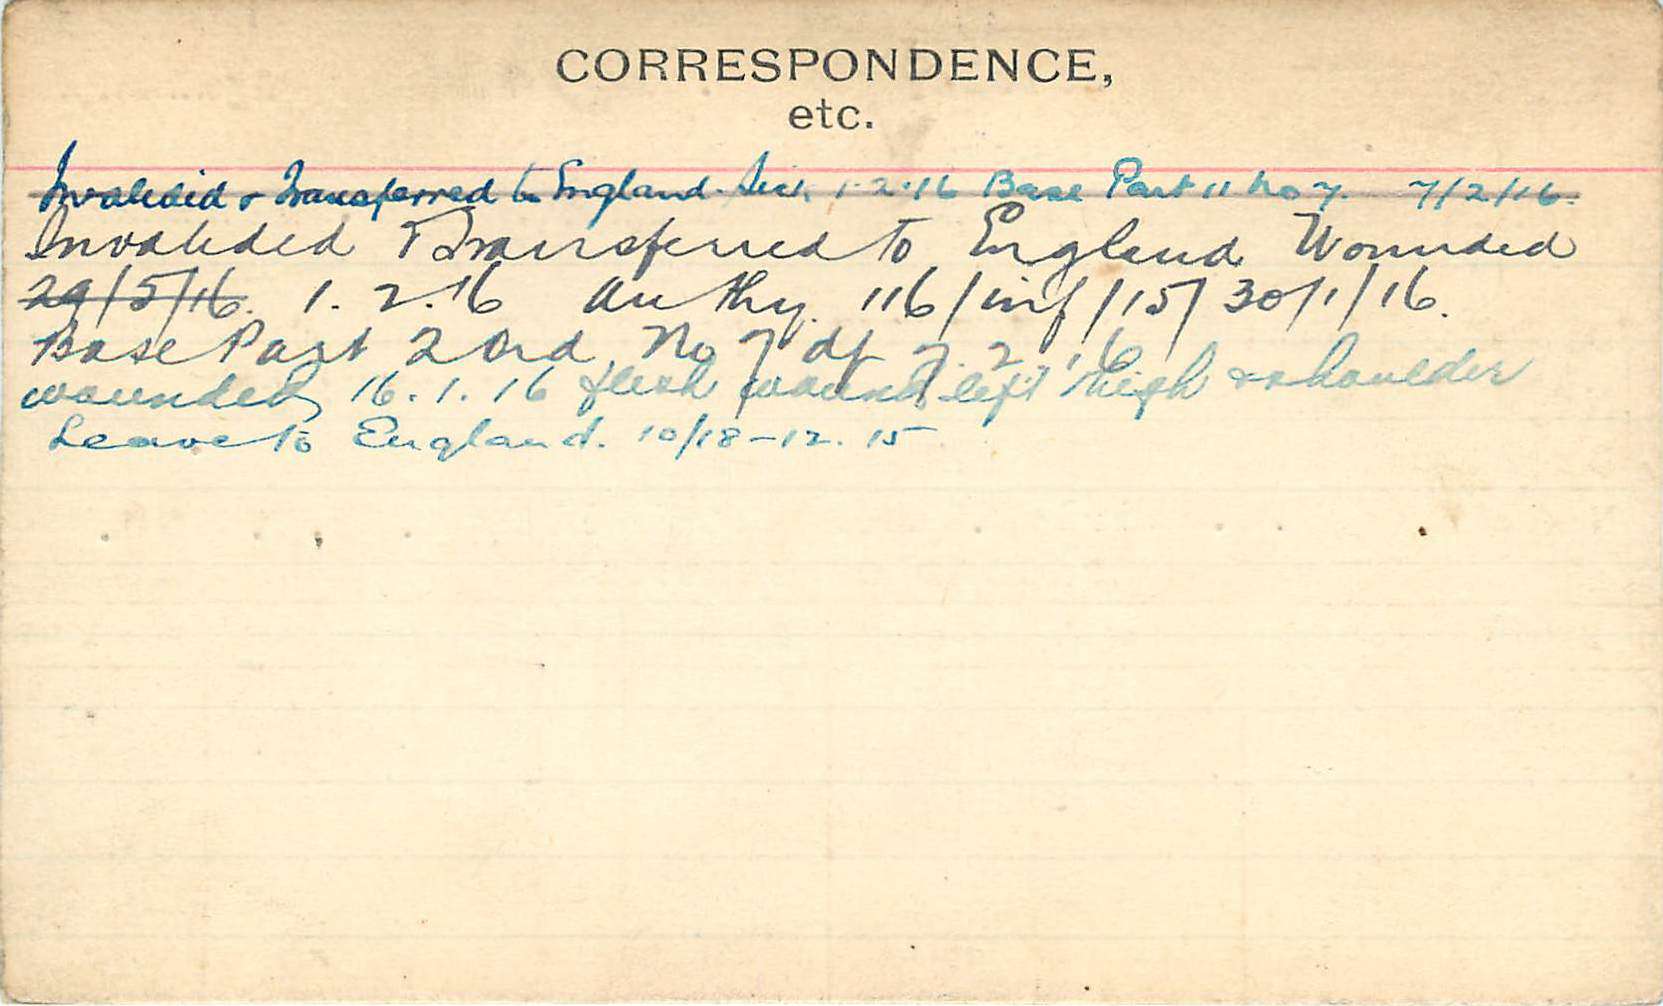 CORRESPONDENCE,
etc.
Invalidid & Transferred to England. Sick 1.2.16 Base Part 11 No 7. 7/2/16.
Invalided Transferred to England Wounded
29/5/16. 1.2.16 Authy. 116/inf/15/30/1/16.
Base Part 2 Ord, No 7 df 7.2.16
wounded 16.1.16 flesh wound left thigh & shoulder
Leave to England. 10/18-12.15